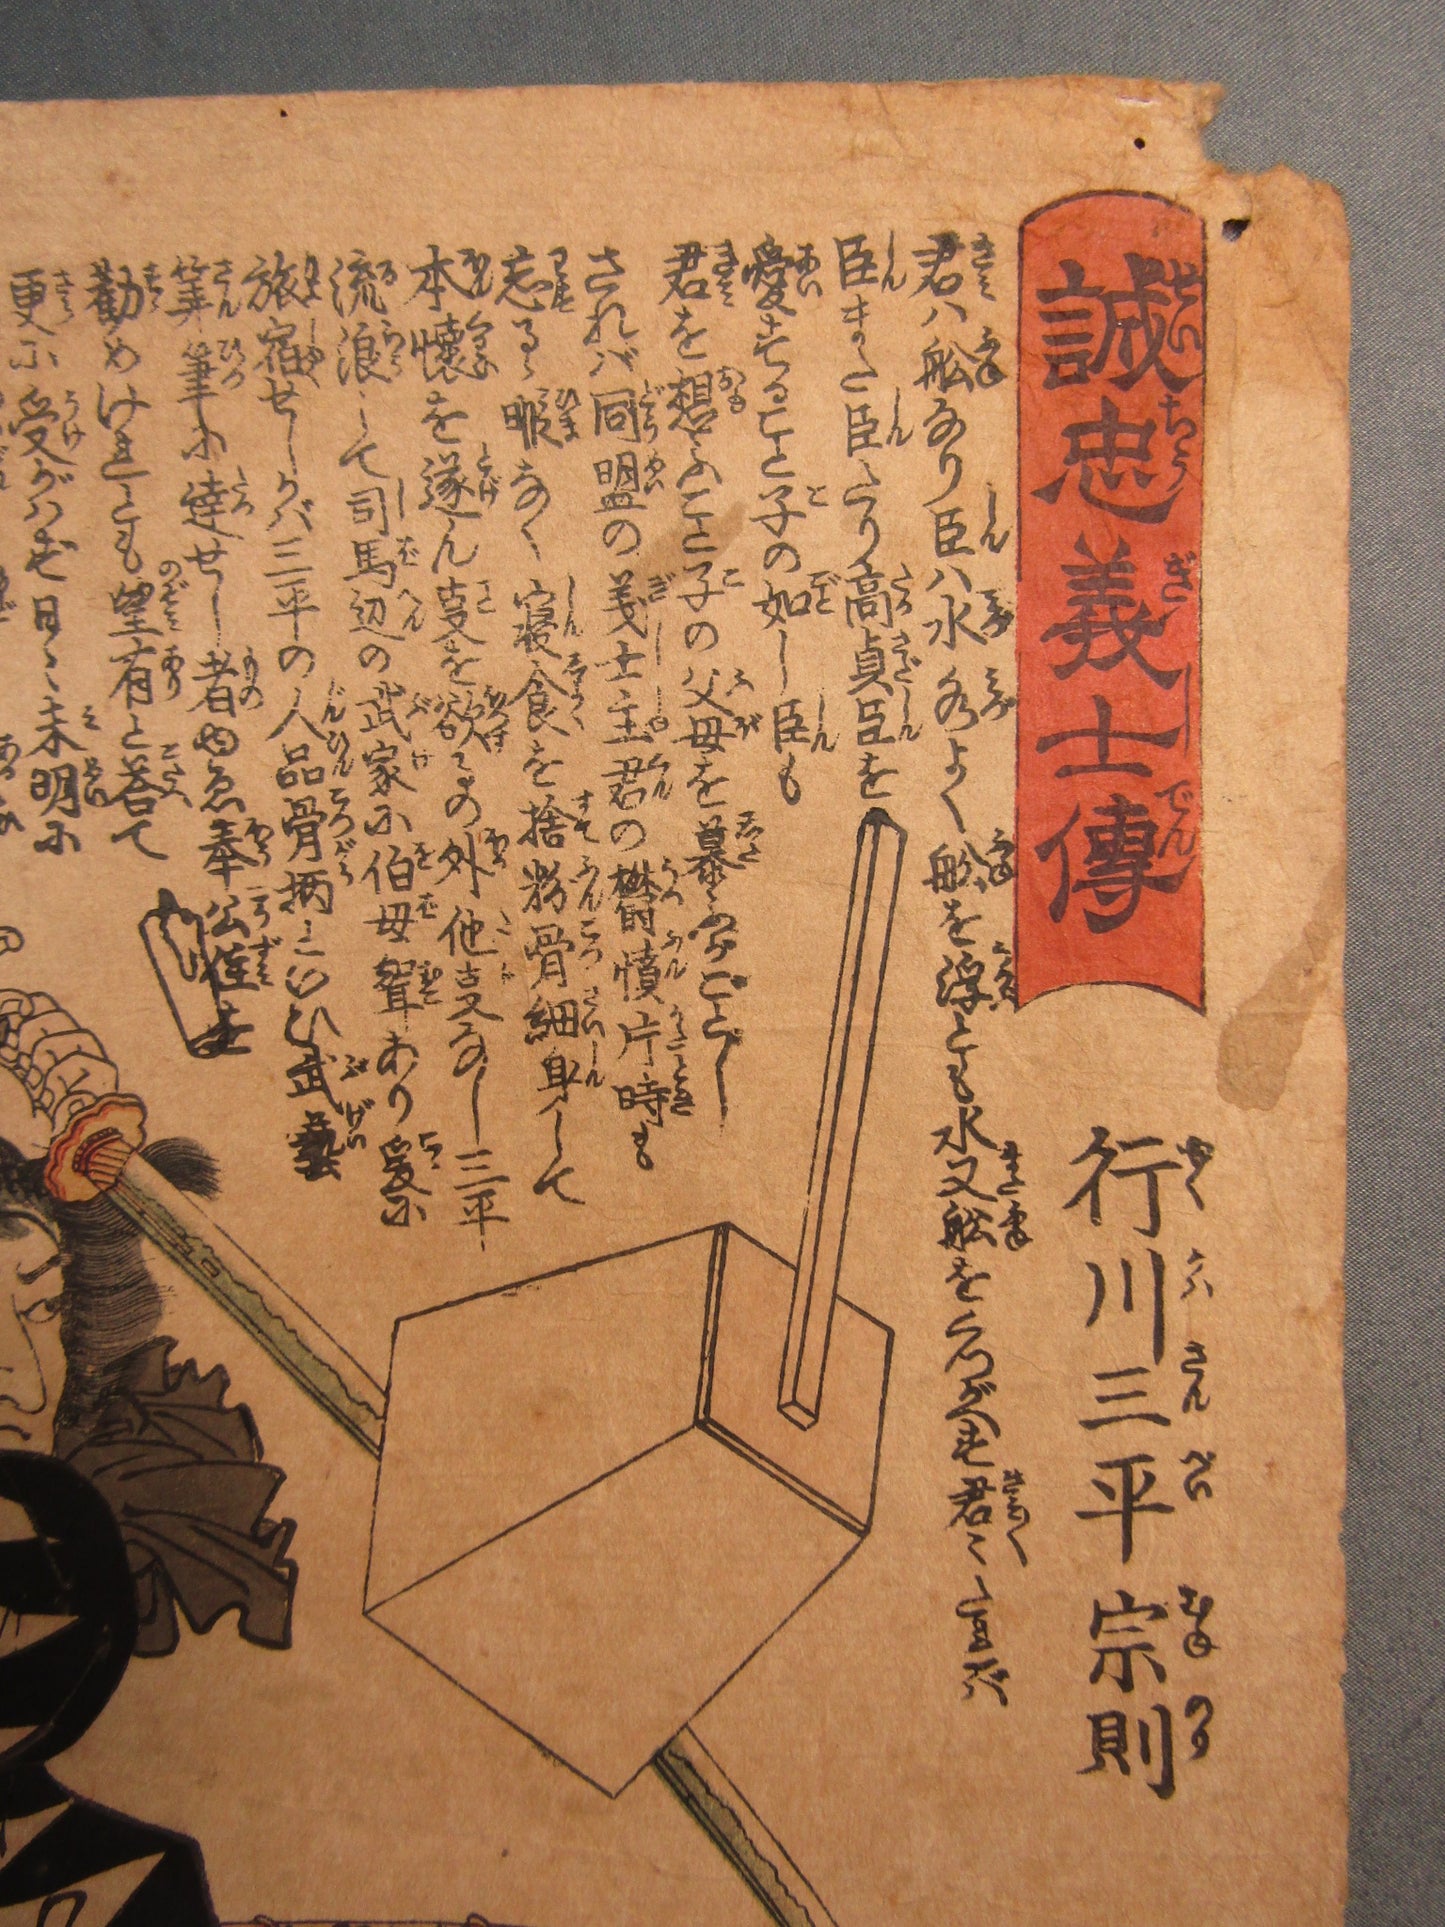 誠忠義士傳
行川三平宗則
君ハ舩なり臣ハ水水よく舩を浮とも水又舩をくつがへす君々々たれバ
臣また臣たり高貞臣を
愛すること子の如し臣も
君を想ふこと子の父母を慕ふがごとし
されバ同盟の義士主君の鬱憤片時も
忘るゝ暇なく寝食を捨粉骨細身して
本懐を遂ん事を欲その外他事なし三平
流浪して司馬辺の武家に伯母聟あり爰に
旅宿せしかバ三平の人品骨柄といひ武藝
筆に達せし者ゆゑ奉公
勧めけれとも望有と荅て
更に受がハず日々未明に